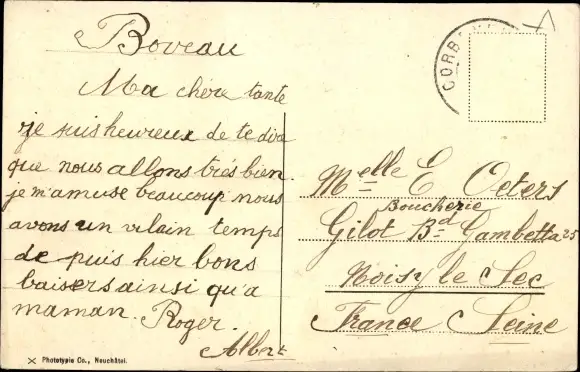 Boveau
Ma chère tante
je suis heureux de te dire
que nous allons très bien.
je m'amuse beaucoup nous
avons un vilain temps
de puis hier bons
baisers ainsi qu'a
maman. Roger.
Albert
CORB
Melle E Oeters
Boucherie
Gilot Bd Gambetta 25
Noisy le Sec
France Seine
X Phototypie Co., Neuchâtel.